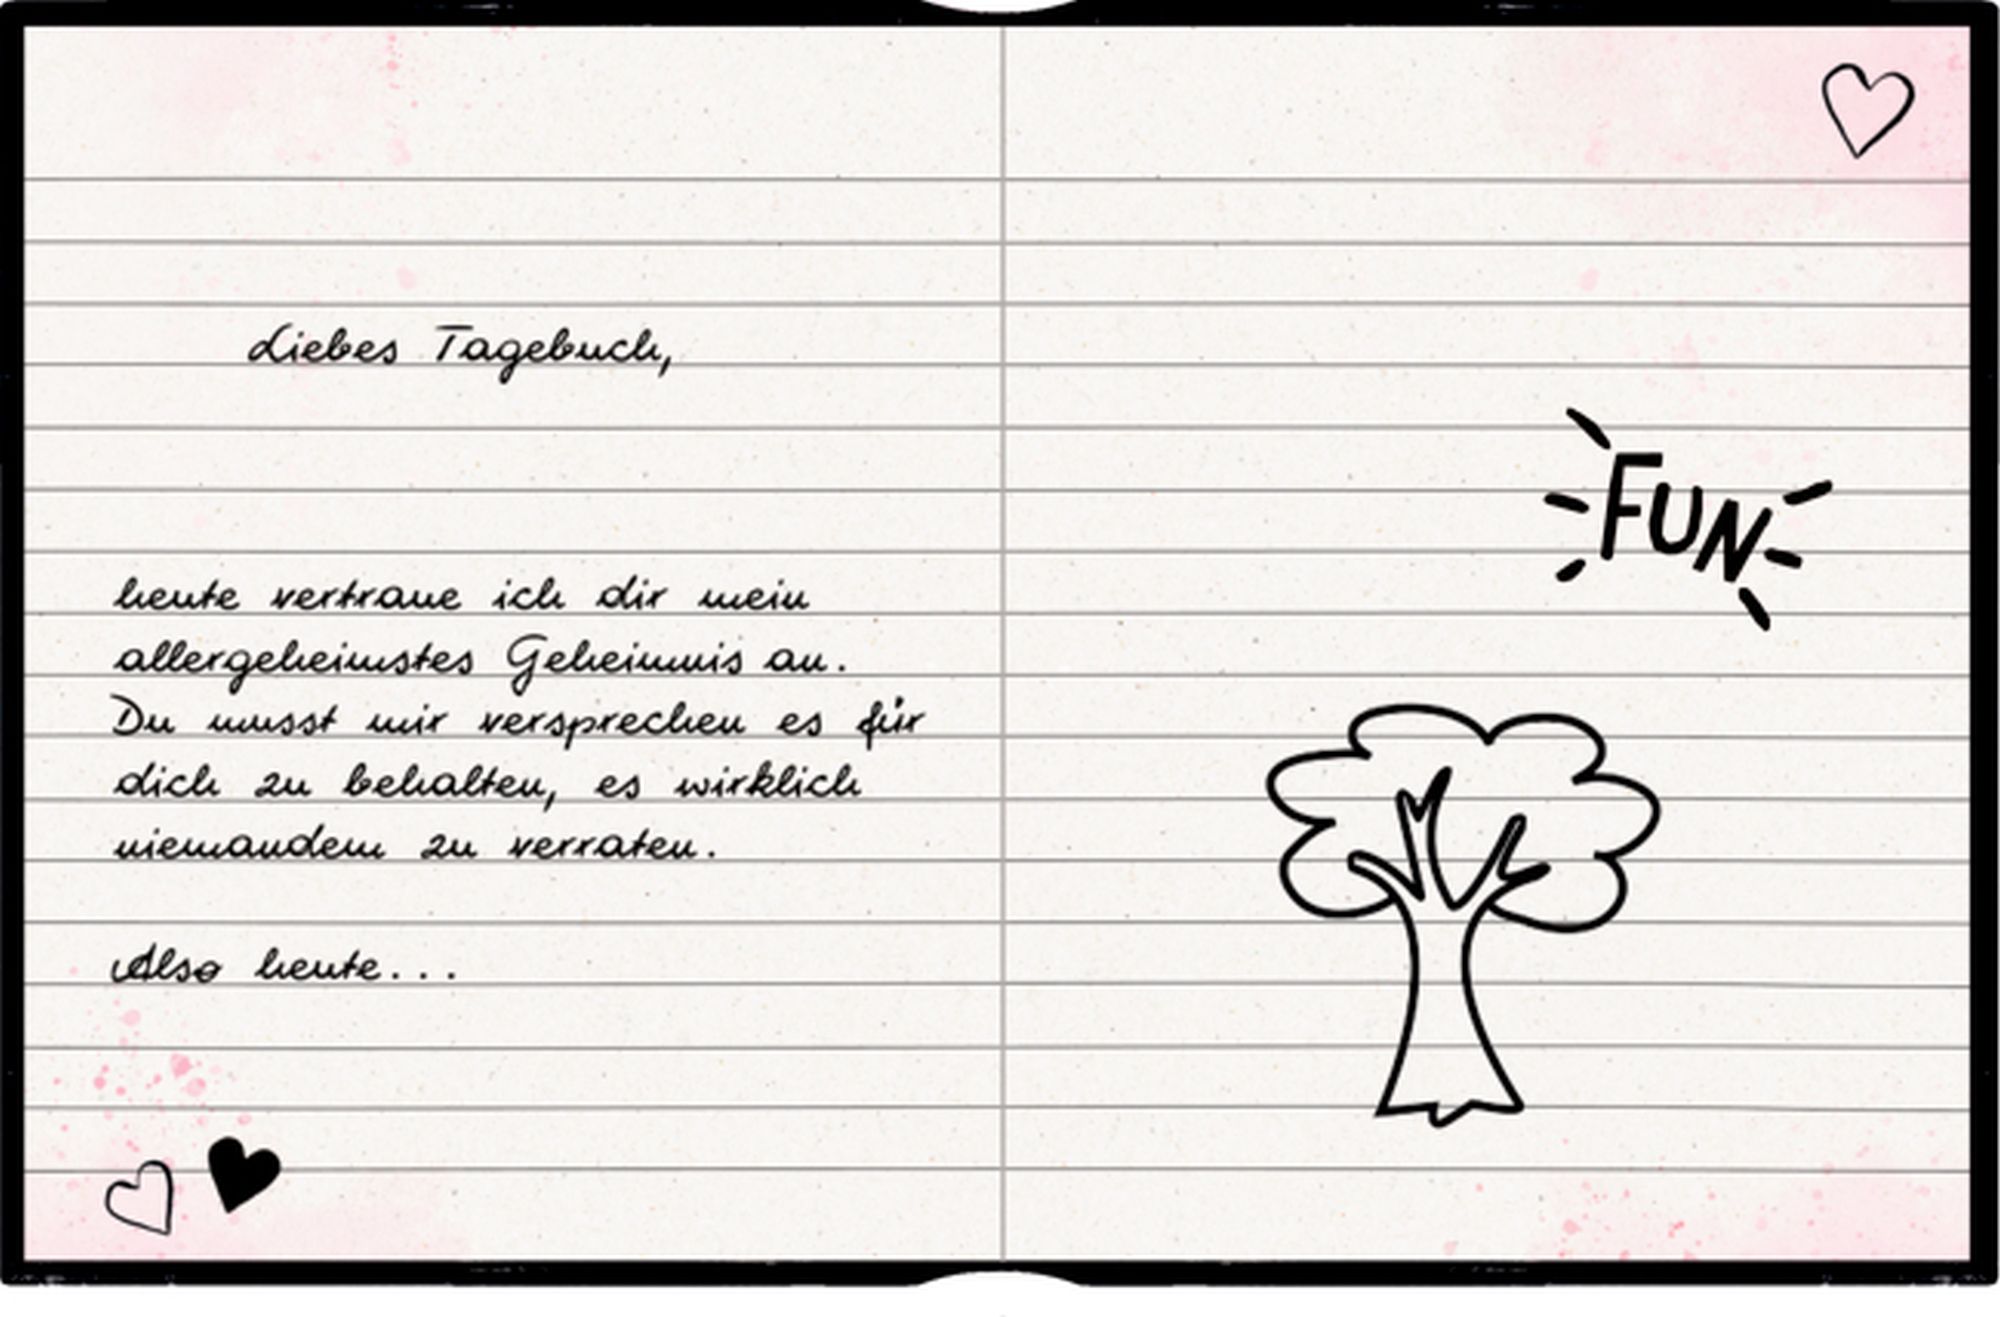 Liebes Tagebuch,
heute vertraue ich dir mein
allergeheimstes Geheimnis an.
Du musst mir versprechen es für
dich zu behalten, es wirklich
niemandem zu verraten.
Also heute...
FUN